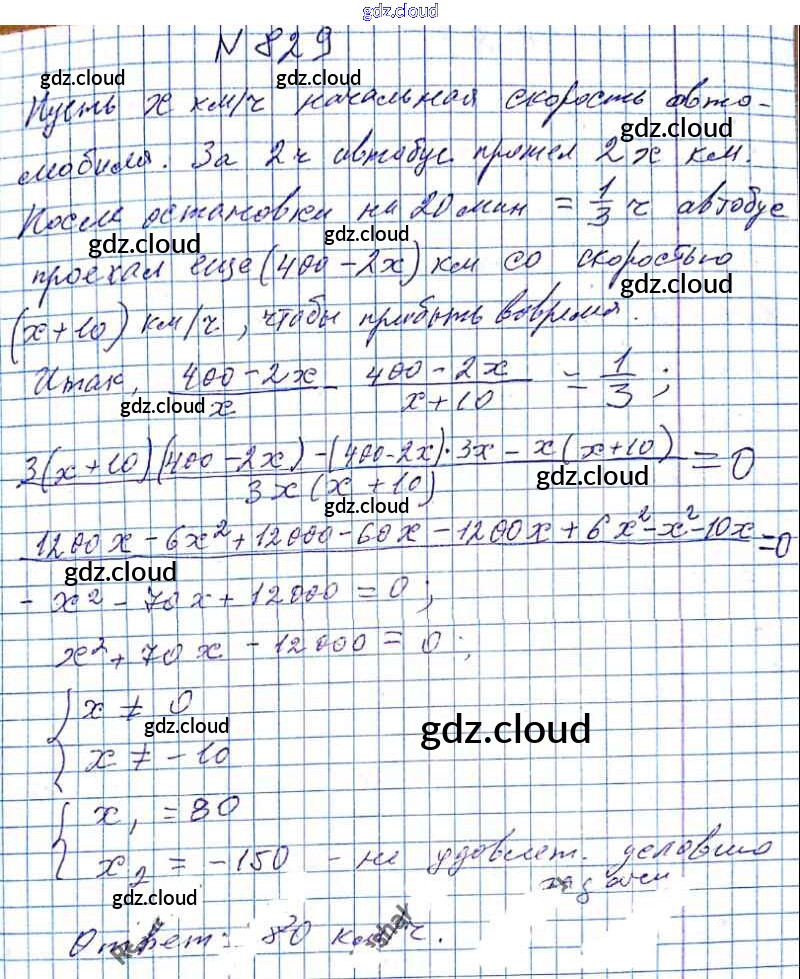 gdz.cloud
N 829
gdz.cloud gdz.cloud
Пусть x км/ч начальная скорость авто-
gdz.cloud
мобиля. За 2 ч автобус прошел 2x км.
После остановки на 20 мин = 1/3 ч автобус
gdz.cloud gdz.cloud
проехал еще (400 - 2x) км со скоростью
gdz.cloud
(x+10) км/ч, чтобы прибыть вовремя.
Итак, (400 - 2x)/x - (400 - 2x)/(x+10) = 1/3;
gdz.cloud
(3(x+10)(400-2x) - (400-2x)·3x - x(x+10))/(3x(x+10)) = 0
gdz.cloud
gdz.cloud
1200x - 6x² + 12000 - 60x - 1200x + 6x² - x² - 10x = 0
gdz.cloud gdz.cloud
- x² - 70x + 12000 = 0;
x² + 70x - 12000 = 0;
{ x ≠ 0
gdz.cloud gdz.cloud
x ≠ -10
{ x₁ = 80
x₂ = -150 - не удовлет. условию
задачи
gdz.cloud
Ответ: 80 км/ч.